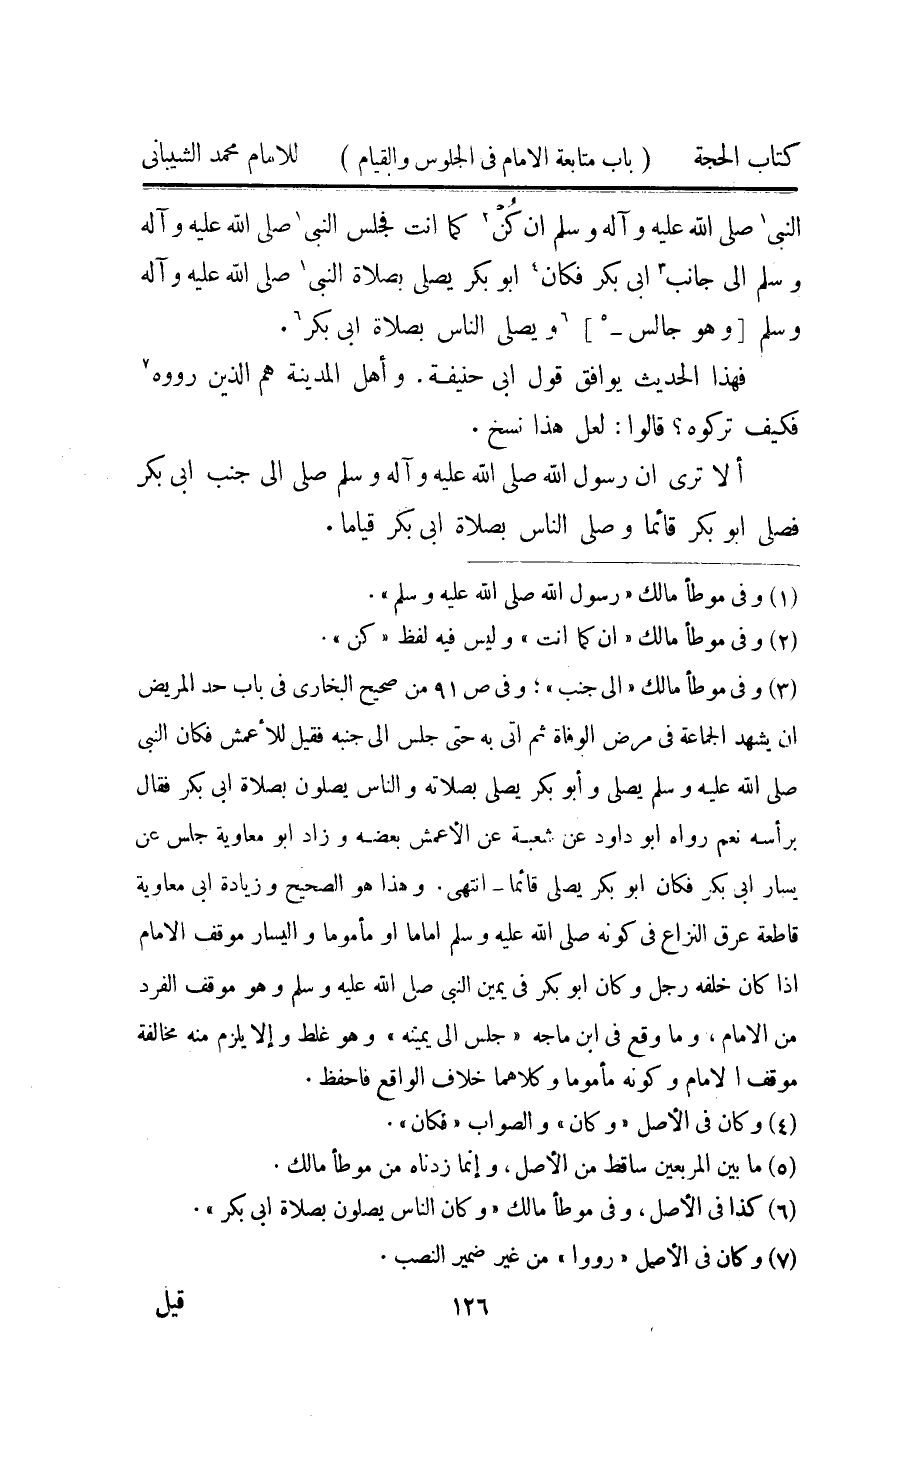 كتاب الحجة ( باب متابعة الامام فى الجلوس والقيام ) للامام محمد الشيبانى
النبى١ صلى الله عليه و آله و سلم ان كُنْ٢ كما انت فجلس النبى١ صلى الله عليه و آله
و سلم الى جانب٣ ابى بكر فكان٤ ابو بكر يصلى بصلاة النبى١ صلى الله عليه و آله
و سلم [ و هو جالس -٥ ] ٦و يصلى الناس بصلاة ابى بكر٦ .
فهذا الحديث يوافق قول ابى حنيفة . و أهل المدينة هم الذين رووه٧
فكيف تركوه ؟ قالوا : لعل هذا نسخ .
ألا ترى ان رسول الله صلى الله عليه و آله و سلم صلى الى جنب ابى بكر
فصلى ابو بكر قائما و صلى الناس بصلاة ابى بكر قياما .
(١) و فى موطأ مالك « رسول الله صلى الله عليه و سلم » .
(٢) و فى موطأ مالك « ان كما انت » و ليس فيه لفظ « كن » .
(٣) و فى موطأ مالك « الى جنب » ؛ و فى ص ٩١ من صحيح البخارى فى باب حد المريض
ان يشهد الجماعة فى مرض الوفاة ثم اتى به حتى جلس الى جنبه فقيل للأعمش فكان النبى
صلى الله عليه و سلم يصلى و أبو بكر يصلى بصلاته و الناس يصلون بصلاة ابى بكر فقال
برأسه نعم رواه ابو داود عن شعبة عن الأعمش بعضه و زاد ابو معاوية جلس عن
يسار ابى بكر فكان ابو بكر يصلى قائما - انتهى . و هذا هو الصحيح و زيادة ابى معاوية
قاطعة عرق النزاع فى كونه صلى الله عليه و سلم اماما او مأموما و اليسار موقف الامام
اذا كان خلفه رجل و كان ابو بكر فى يمين النبى صلى الله عليه و سلم و هو موقف الفرد
من الامام ، و ما وقع فى ابن ماجه « جلس الى يمينه » و هو غلط و إلا يلزم منه مخالفة
موقف الامام و كونه مأموما و كلاهما خلاف الواقع فاحفظ .
(٤) و كان فى الأصل « و كان » و الصواب « فكان » .
(٥) ما بين المربعين ساقط من الأصل ، و إنما زدناه من موطأ مالك .
(٦) كذا فى الأصل ، و فى موطأ مالك « و كان الناس يصلون بصلاة ابى بكر » .
(٧) و كان فى الأصل « رووا » من غير ضمير النصب .
١٢٦ قيل